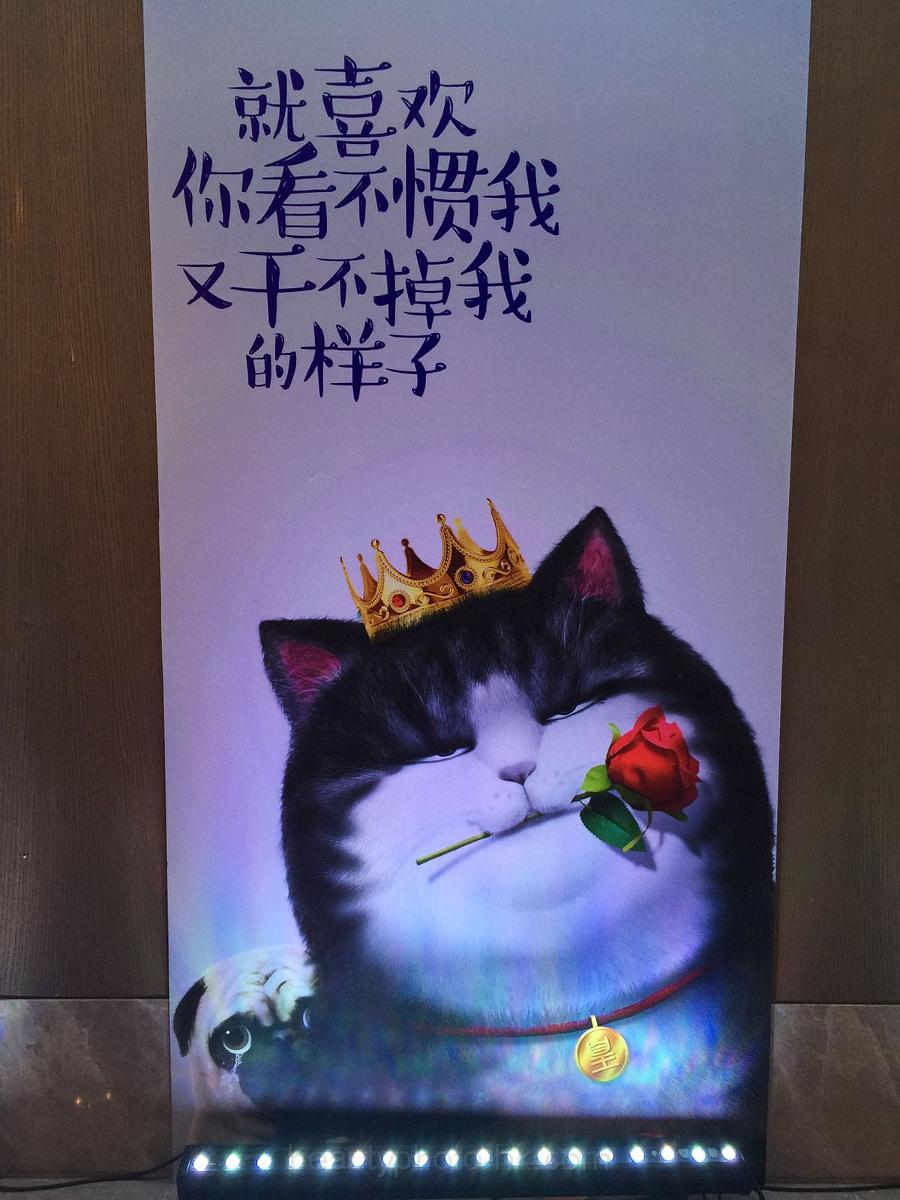 就喜欢
你看不惯我
又干不掉我
的样子
皇